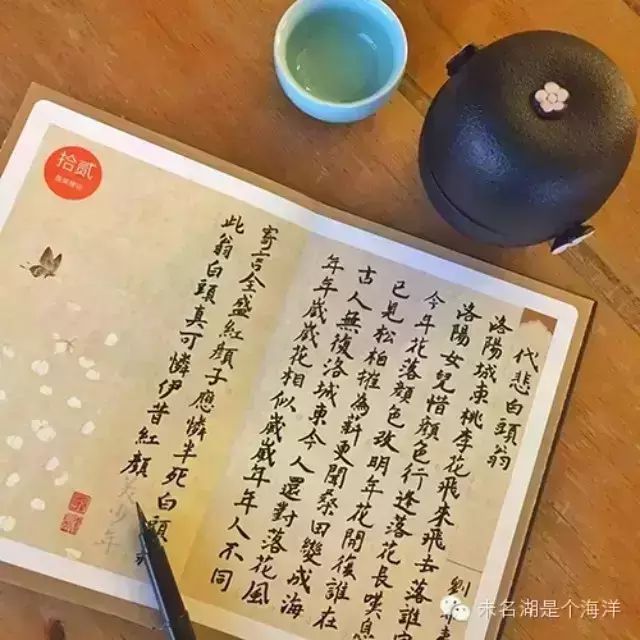 代悲白頭翁
劉
洛陽城東桃李花飛來飛去落誰家
洛陽女兒惜顏色行逢落花長嘆息
今年花落顏色改明年花開後誰在
已見松柏摧為薪更聞桑田變成海
古人無復洛城東今人還對落花風
年年歲歲花相似歲歲年年人不同
寄言全盛紅顏子應憐半死白頭
此翁白頭真可憐伊昔紅顏美少年
拾贰
未名湖是个海洋